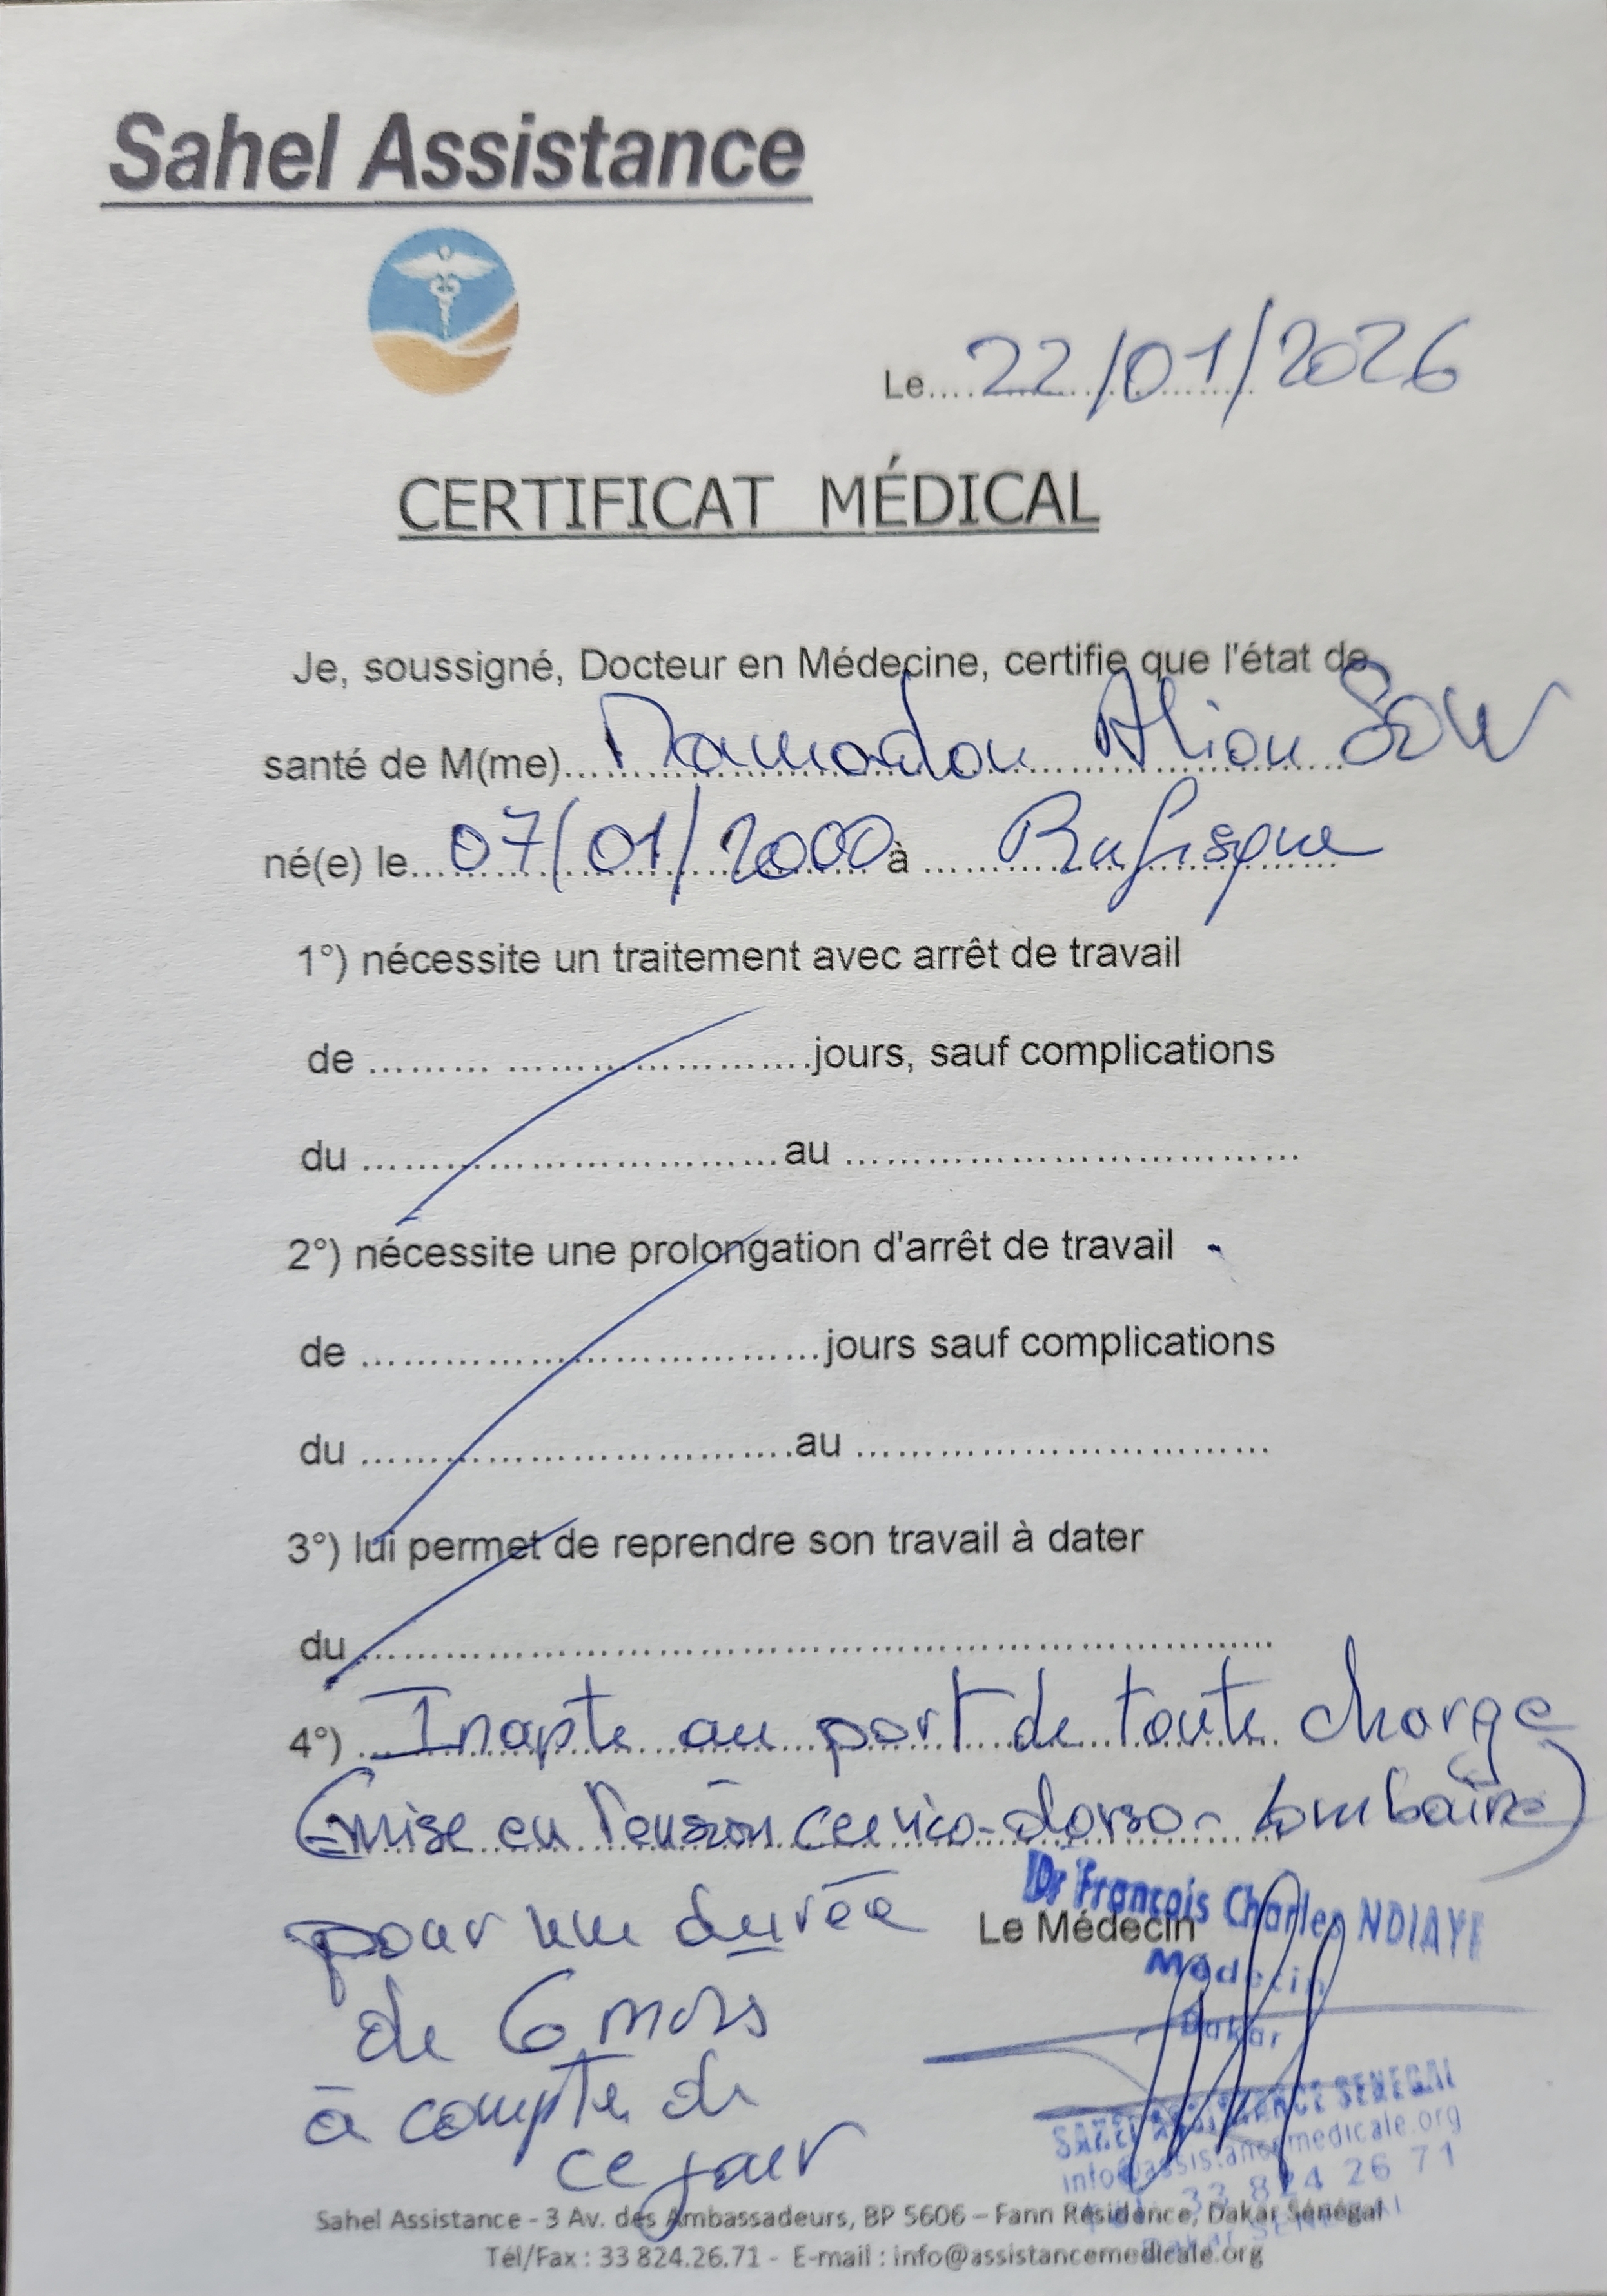 Sahel Assistance
Le....22/01/2026
CERTIFICAT MÉDICAL
Je, soussigné, Docteur en Médecine, certifie que l'état de
santé de M(me)...Mamadou Aliou SOW
né(e) le...07/01/2000 à ... Rufisque
1°) nécessite un traitement avec arrêt de travail
de ..............................jours, sauf complications
du ..............................au ..............................
2°) nécessite une prolongation d'arrêt de travail
de ..............................jours sauf complications
du ..............................au ..............................
3°) lui permet de reprendre son travail à dater
du ..............................
4°) Inapte au port de toute charge
(mise en tension cervico-dorso-lombaire)
pour une durée
de 6 mois
à compter de
ce jour
Le Médecin
Dr François Charles NDIAYE
Médecin
Dakar
SAHEL ASSISTANCE SENEGAL
info@assistancemedicale.org
33 824 26 71
Sahel Assistance - 3 Av. des Ambassadeurs, BP 5606 – Fann Résidence, Dakar Sénégal
Tél/Fax : 33 824.26.71 - E-mail : info@assistancemedicale.org